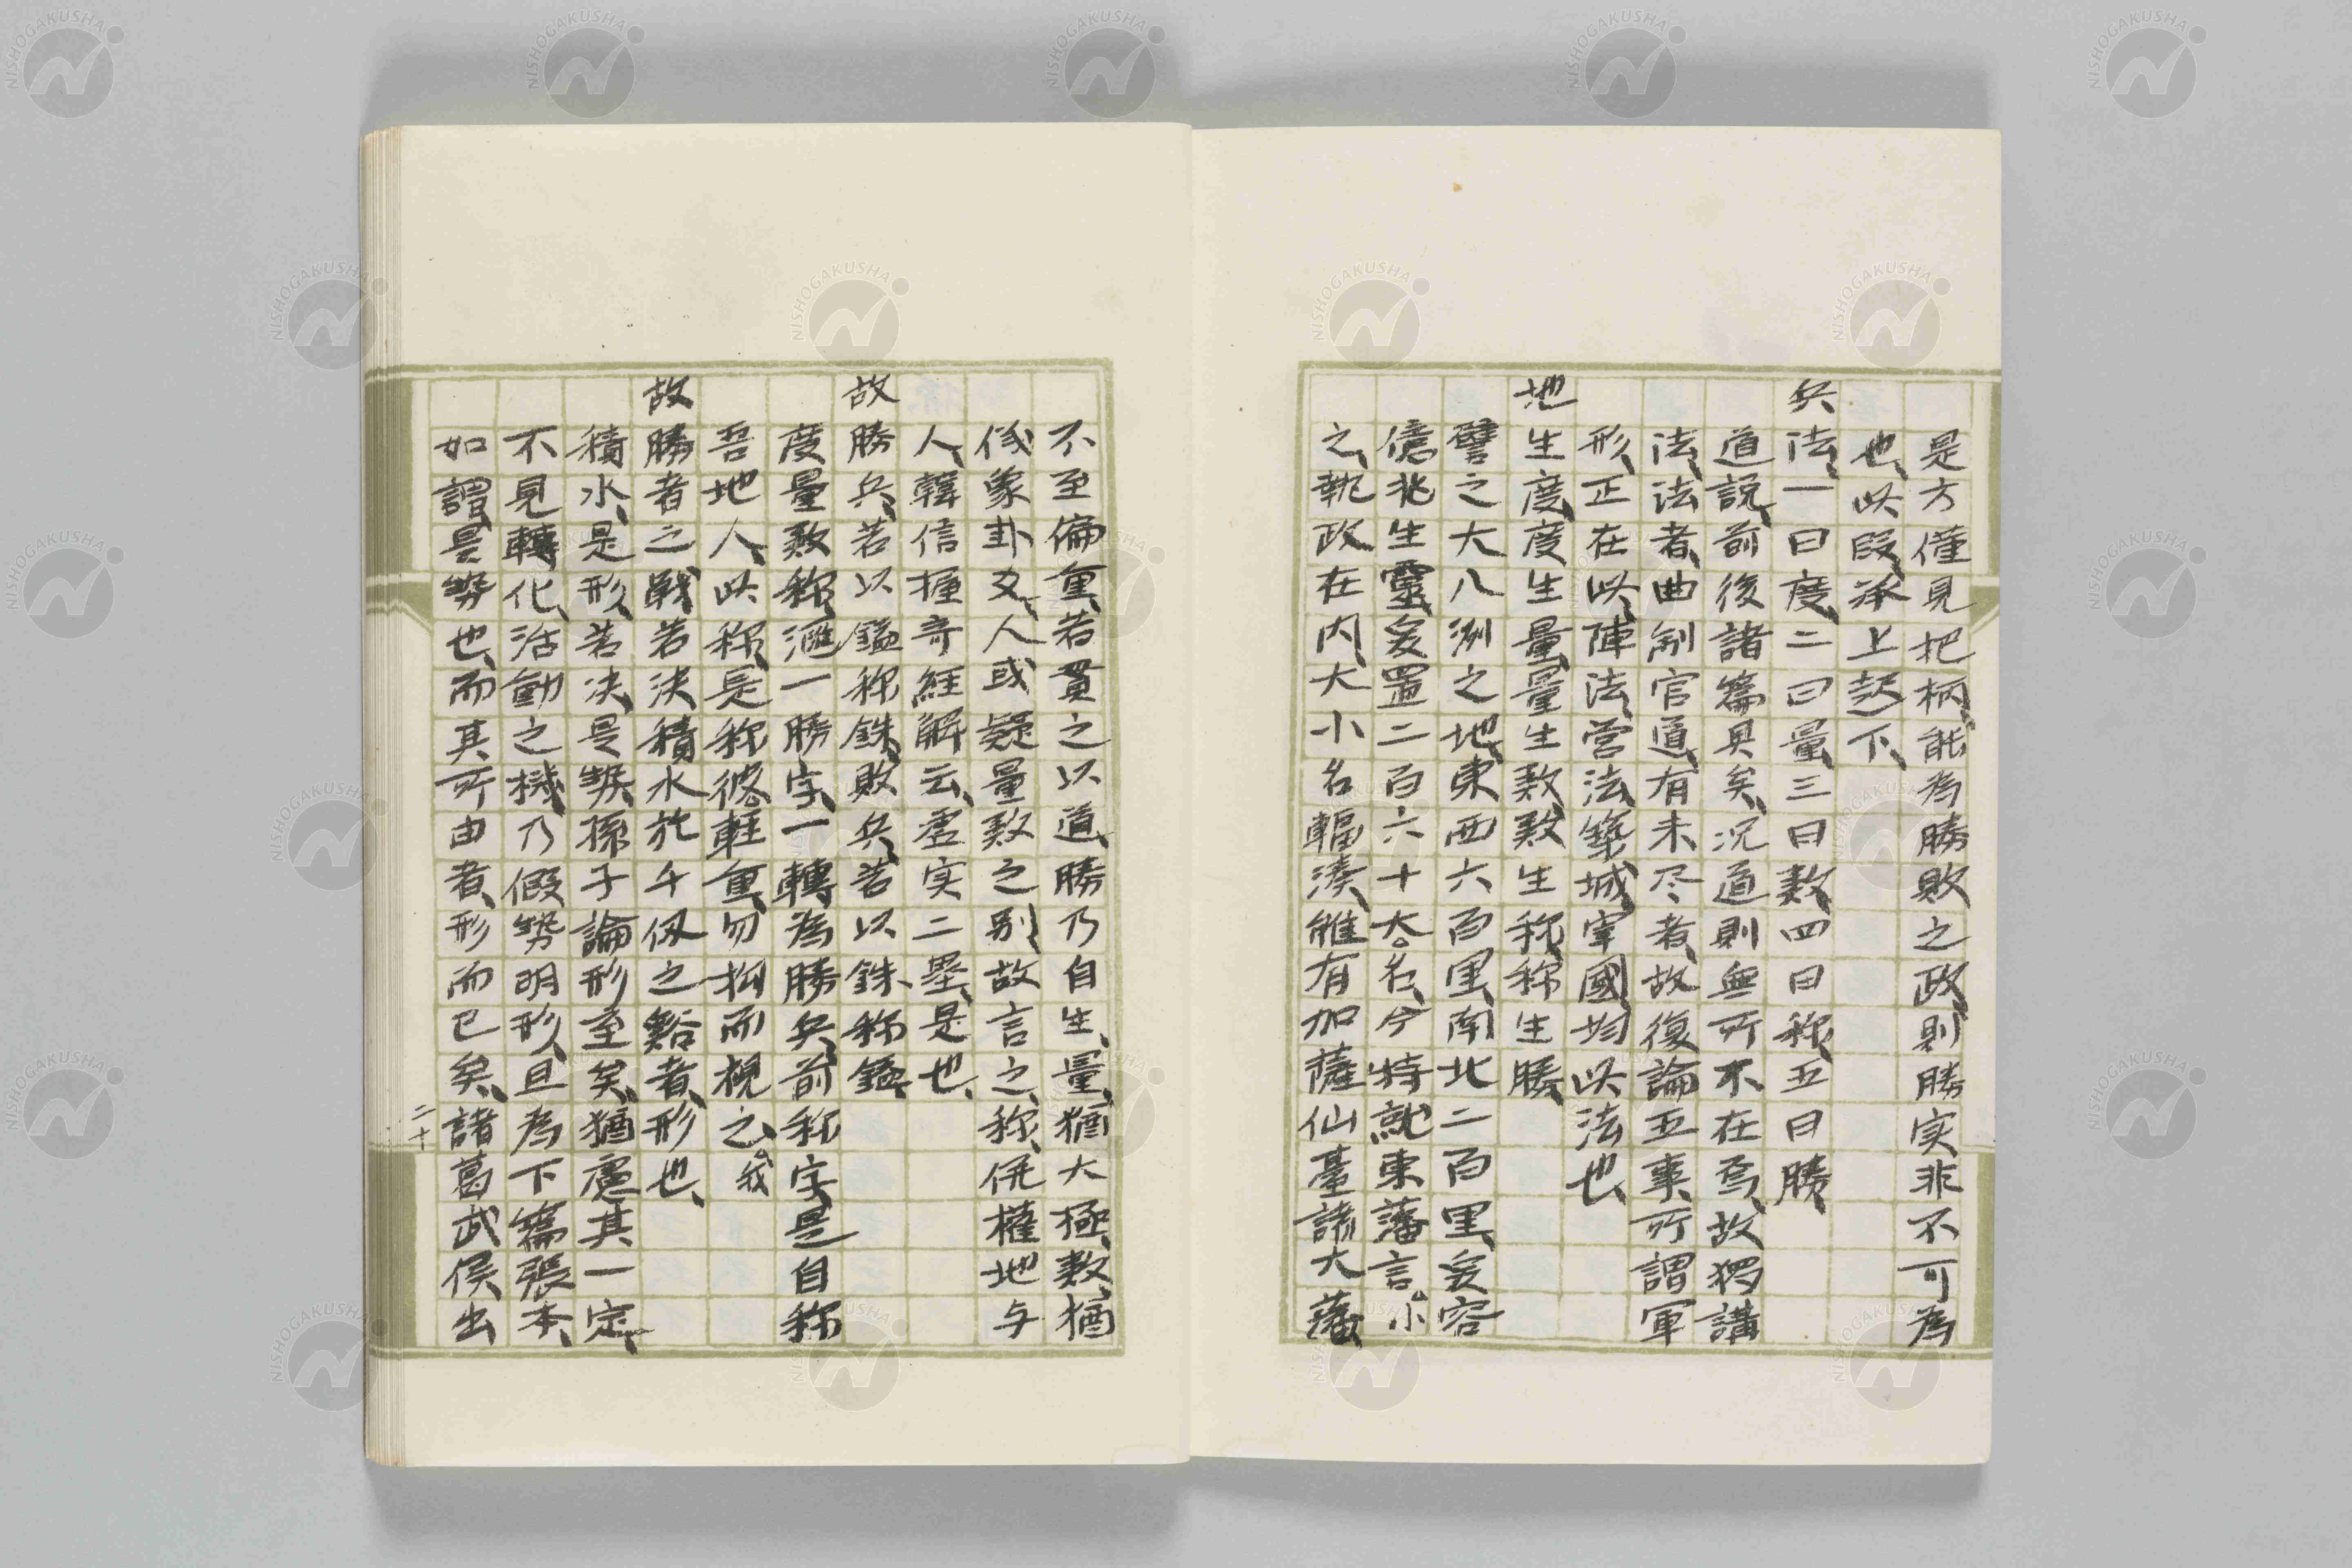 是方僅見把柄、能為勝敗之政、則勝実非不可為
也、此段承上起下、
兵法、一曰度、二曰量、三曰数、四曰称、五曰勝
道説、前後諸篇具矣、况道則無所不在焉、故独講
法、法者、曲制官道、有未尽者、故復論五事、所謂軍
形、正在此、陣法、営法、築城、宰國、均以此法也、
地生度、度生量、量生数、数生称、称生勝、
譬之大八洲之地、東西六百里、南北二百里、爰容
億兆生靈、爰置二百六十大名、今特就東藩言小
之、執政在内、大小名輻湊、雖有加薩仙臺諸大藩、
不至偏重、若貫之以道、勝乃自生、量、猶大極、数、猶
儀象卦爻、人或疑量数之別、故言之、称、保權地与
人、韓信握奇経解云、虚実二壘、是也、
故勝兵、若以鎰称銖、敗兵、若以銖称鎰、
度量数称、滙一勝字、一轉為勝兵、前称字、是自称
吾地人、此称、是称彼軽重、勿拘而視之、我
故勝者之戦、若決積水於千仭之谿者、形也、
積水、是形、若决、是勢、孫子論形至矣、猶慮其一定、
不見轉化、活動之機、乃假勢明形、且為下篇張本、
如謂是勢也、而其所由者、形而已矣、諸葛武侯出
二十
NISHOGAKUSHA